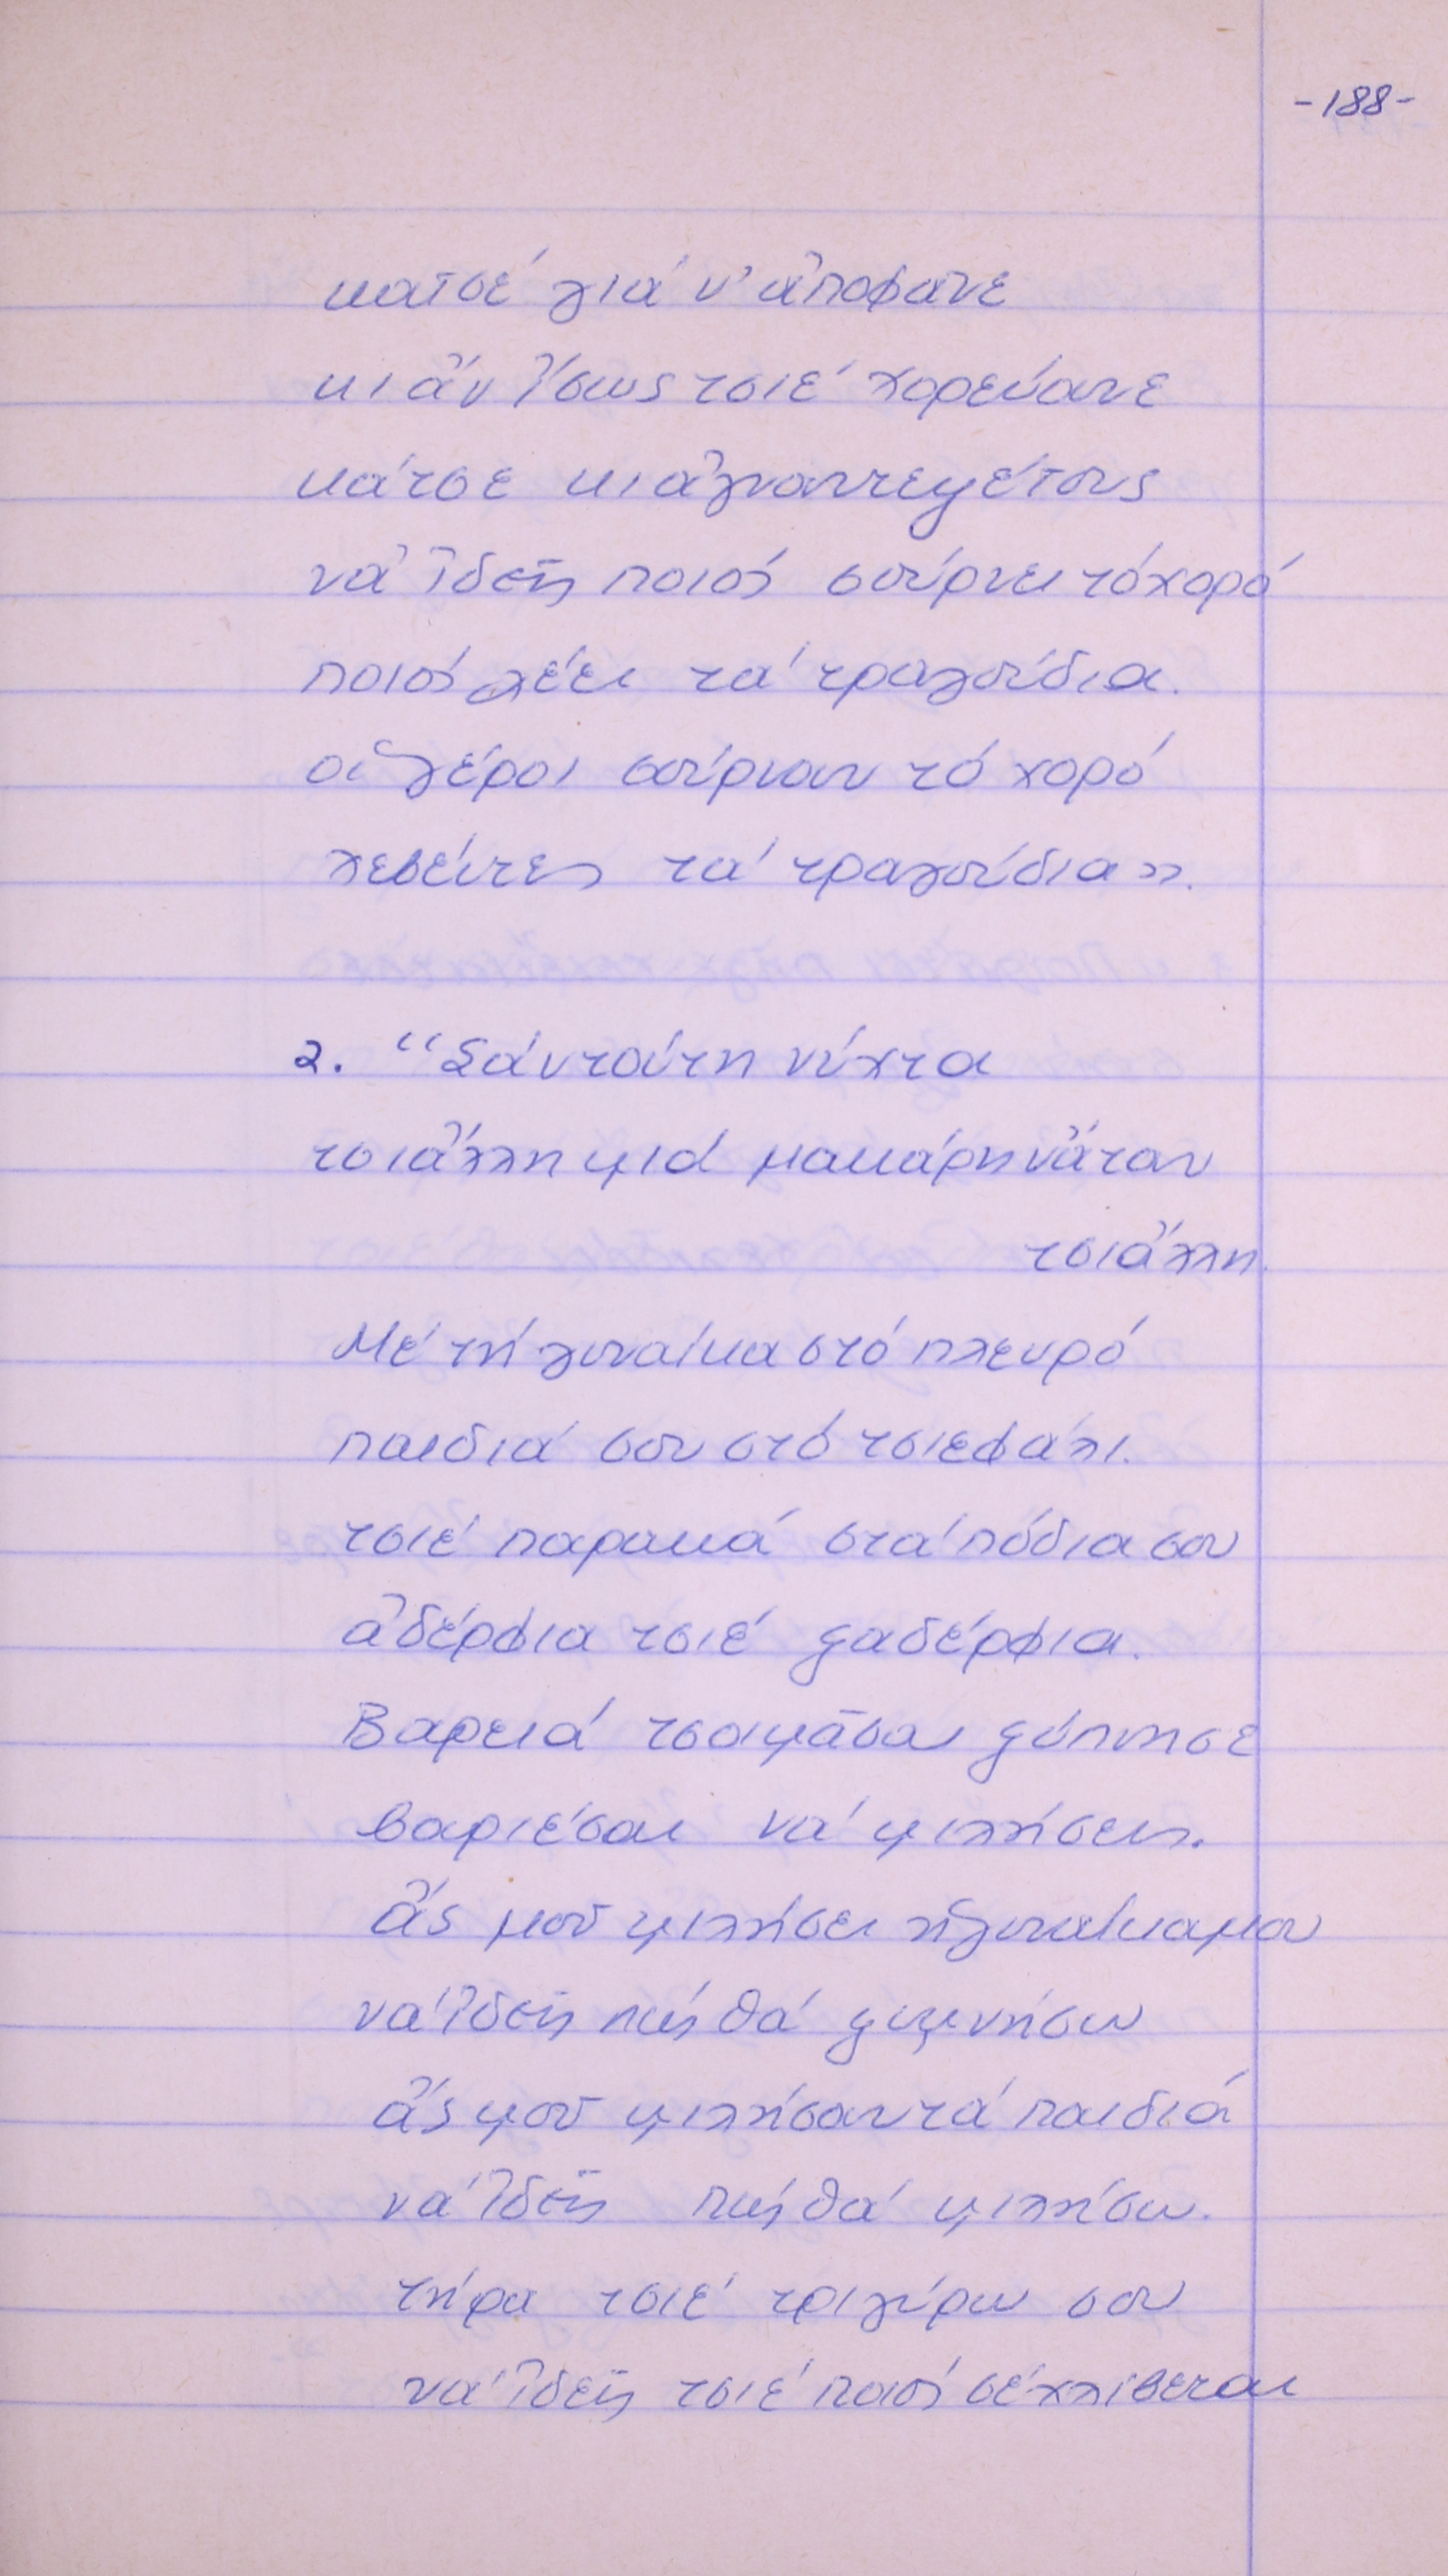 -188-
κατσέ γιά ν' ἀποφᾶνε
κι ἄν ἴσως τσιέ χορεύανε
κάτσε κι ἀγναντεψέτους
νά ἰδῆς ποιός σούρνει τό χορό
ποιός λέει τά τραγούδια.
οἱ γέροι σούρναν τό χορό
λεβέντες τά τραγούδια».
2. "Σάν τούτη νύχτα
τσι ἄλλη μιά μακάρι νἄταν
τσι ἄλλη.
Μέ τή γυναίκα στό πλευρό
παιδιά σου στό τσιεφάλι.
τσιέ παρακά στά πόδια σου
ἀδέρφια τσιέ ξαδέρφια.
Βαρειά τσοιμᾶσαι ξύπνησε
βαριέσαι νά μιλήσεις.
ἄς μοῦ μιλήσει ἡ γυναίκα μου
νά ἰδῆς πώς θά ξυπνήσω
ἄς μοῦ μιλήσουν τά παιδιά
νά ἰδῆς πώς θά μιλήσω.
τήρα τσιέ τριγύρω σου
νά ἰδῆς τσιέ ποιός σέ χλίβεται